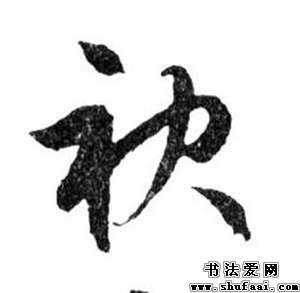 袂
书法爱网
www.shufaai.com